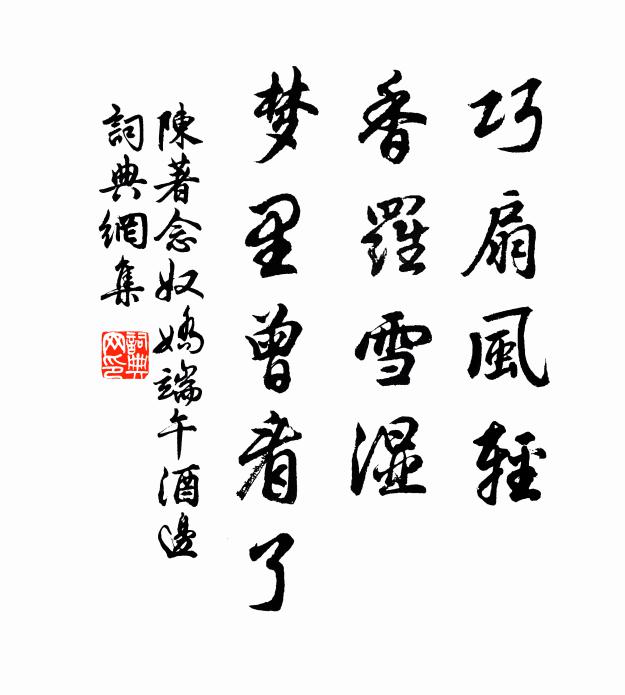 巧扇風輕
香羅雪湿
梦里曾看了
陳著念奴嬌端午酒邊
詞典網集
詞典
网印